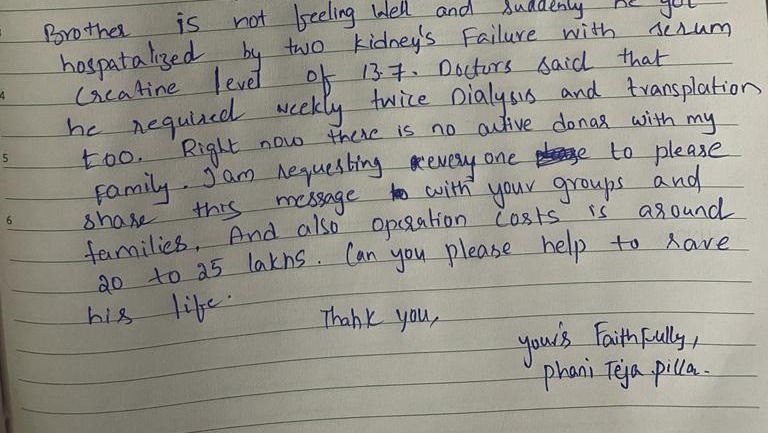 Brother is not feeling well and suddenly he got
hospatalized by two kidney's Failure with serum
Creatine level of 13.7. Doctors said that
he required weekly twice Dialysis and transplation
too. Right now there is no active donar with my
family. I'am requesting every one to please
share this message with your groups and
families. And also operation costs is around
20 to 25 lakhs. Can you please help to save
his life.
Thank you,
your's Faithfully,
phani Teja pilla.